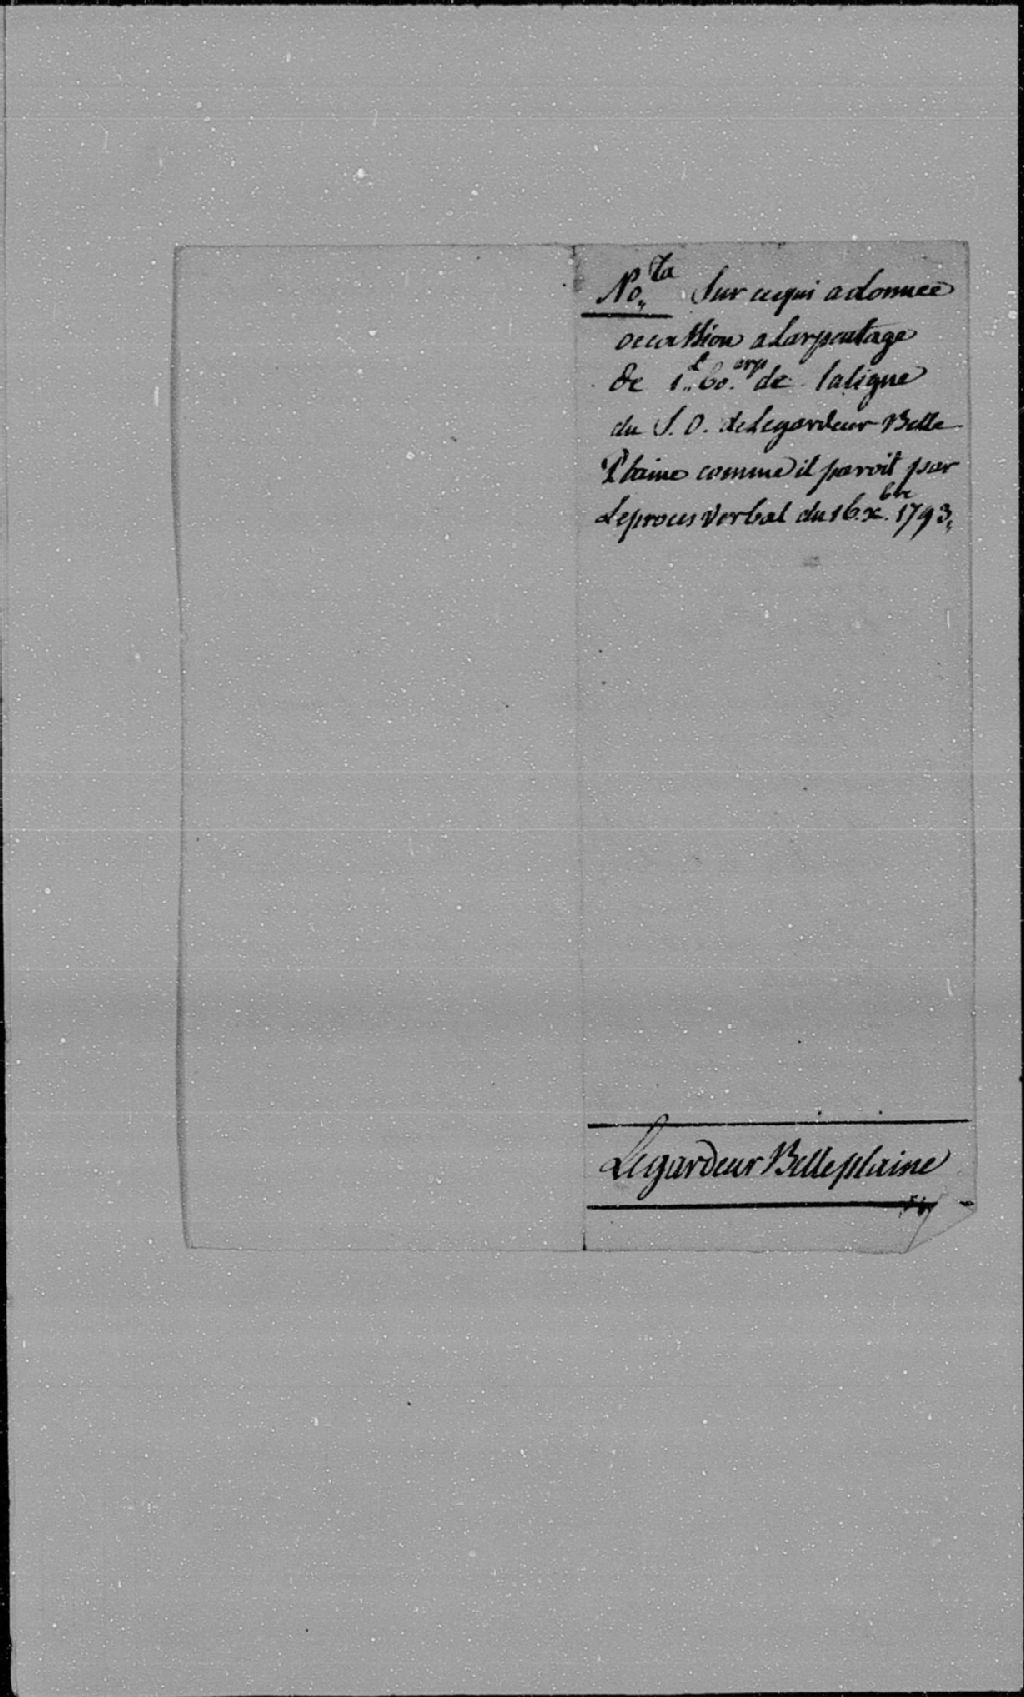 No.ta Sur cequi adonnée
occassion alarpentage
de 1.l 60.arp de laligne
du S. O. deLegardeur Belle
Plaine comme il paroit par
Leproces verbal du 16. x.bre 1793,
Legardeur Belleplaine